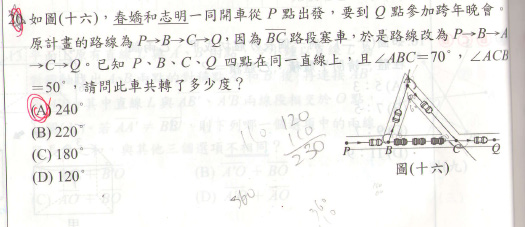 20. 如圖(十六),春嬌和志明一同開車從 P 點出發,要到 Q 點參加跨年晚會。
原計畫的路線為 P→B→C→Q,因為 BC 路段塞車,於是路線改為 P→B→A
→C→Q。已知 P、B、C、Q 四點在同一直線上,且∠ABC=70°,∠ACB
=50°,請問此車共轉了多少度?
(A) 240°
(B) 220°
(C) 180°
(D) 120°
110
120
110
230
360
360
A
P B C Q
圖(十六)